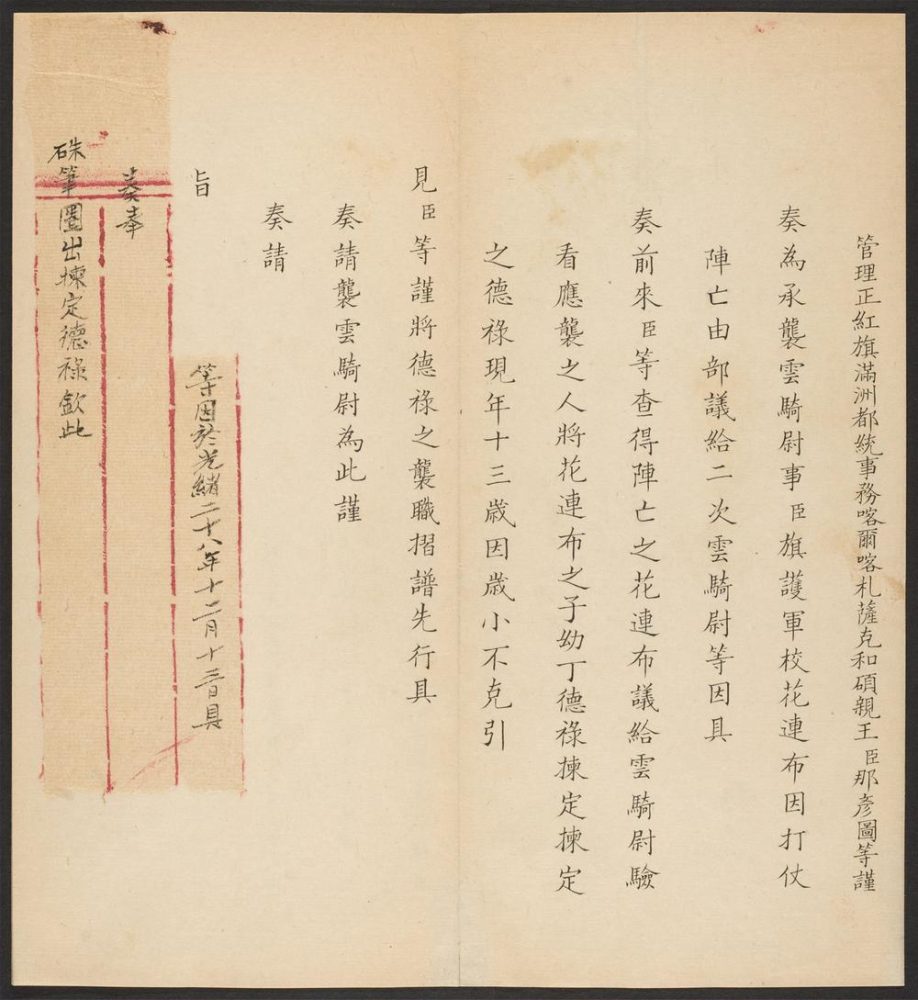 管理正紅旗滿洲都統事務喀爾喀札薩克和碩親王臣那彥圖等謹
奏為承襲雲騎尉事臣旗護軍校花連布因打仗
陣亡由部議給二次雲騎尉等因具
奏前來臣等查得陣亡之花連布議給雲騎尉驗
看應襲之人將花連布之子幼丁德祿揀定揀定
之德祿現年十三歲因歲小不克引
見臣等謹將德祿之襲職摺譜先行具
奏請襲雲騎尉為此謹
奏請
旨
等因於光緒二十八年十二月十三日具
奏奉
硃筆圈出揀定德祿欽此